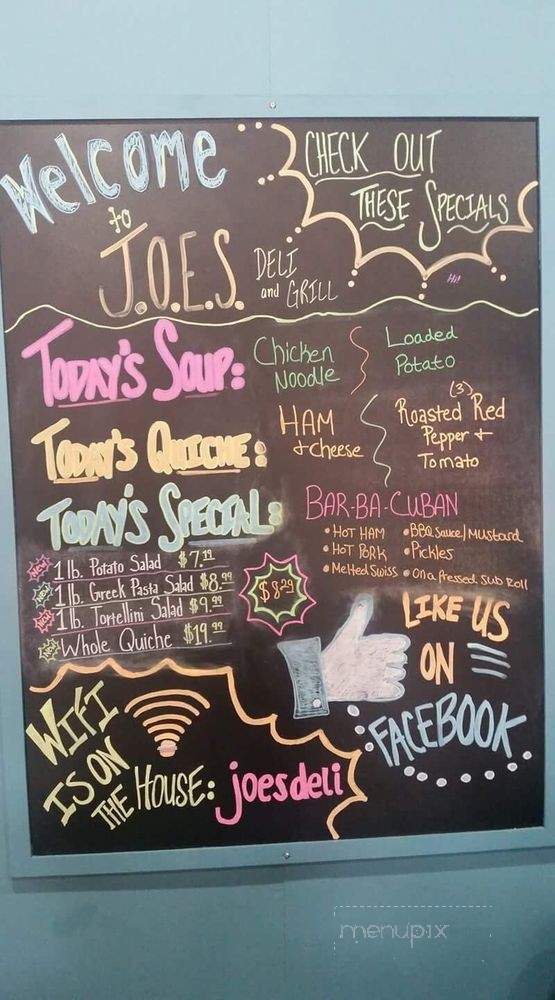 Welcome
to
J.O.E.S. DELI
and GRILL
CHECK OUT
THESE SPECIALS
Hi!
TODAY'S SOUP: Chicken Noodle
Loaded Potato
TODAY'S QUICHE: HAM + cheese
(3)
Roasted Red Pepper + Tomato
TODAY'S SPECIAL:
BAR-BA-CUBAN
• HOT HAM • BBQ Sauce/Mustard
• HOT PORK • Pickles
• Melted Swiss • On a Pressed Sub Roll
$8.29
New 1 lb. Potato Salad $7.19
New 1 lb. Greek Pasta Salad $8.99
New 1 lb. Tortellini Salad $9.99
New Whole Quiche $19.99
LIKE US
ON
FACEBOOK
WIFI
IS ON
THE HOUSE: joesdeli
menupix